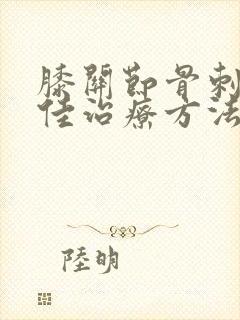 膝關節骨刺
佳治療方法
陸明